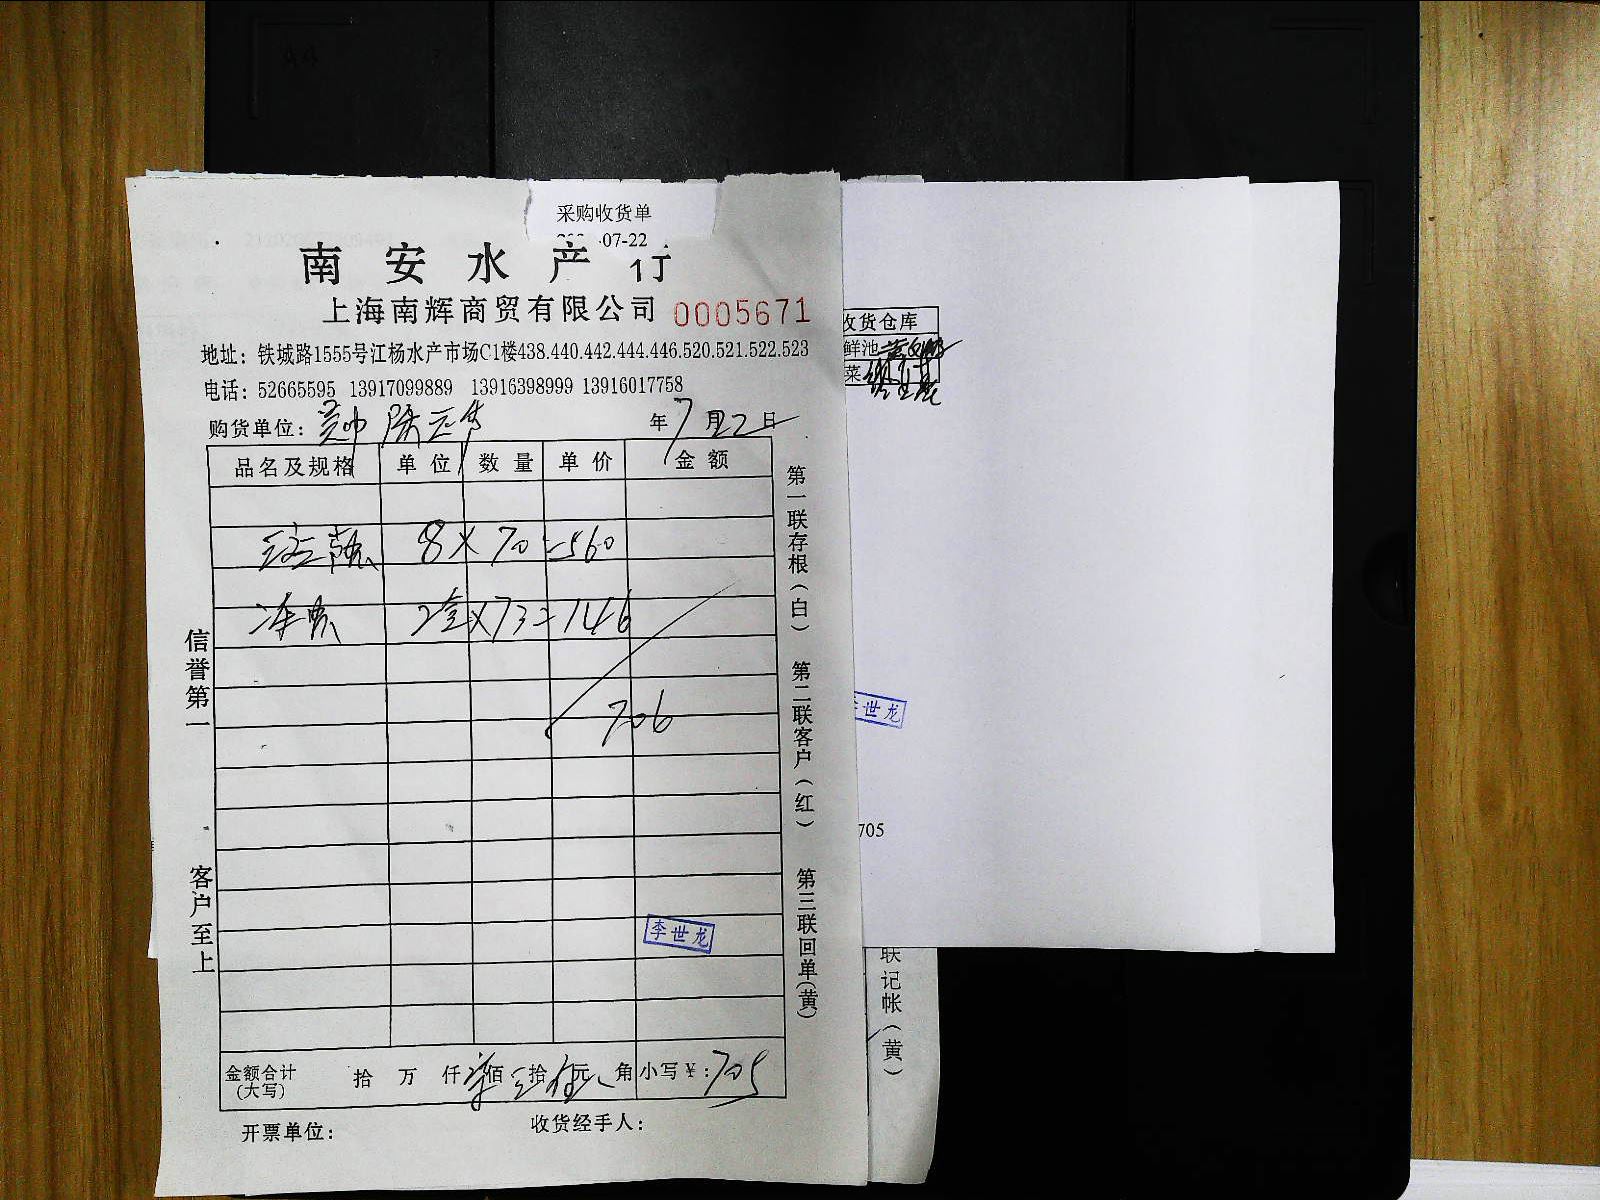 采购收货单
07-22
南安水产行
上海南辉商贸有限公司 0005671
地址：铁城路1555号江杨水产市场C1楼438.440.442.444.446.520.521.522.523
电话：52665595 13917099889 13916398999 13916017758
购货单位： 年7月22日
品名及规格 单位 数量 单价 金额
8×70=560
2盒×73=146
706
李世龙
金额合计(大写) 拾 万 仟 柒佰 拾 伍元 角 小写￥：705
开票单位： 收货经手人：
信誉第一
客户至上
第一联存根（白） 第二联客户（红） 第三联回单（黄）
收货仓库
鲜池
菜
李世龙
705
联记帐（黄）